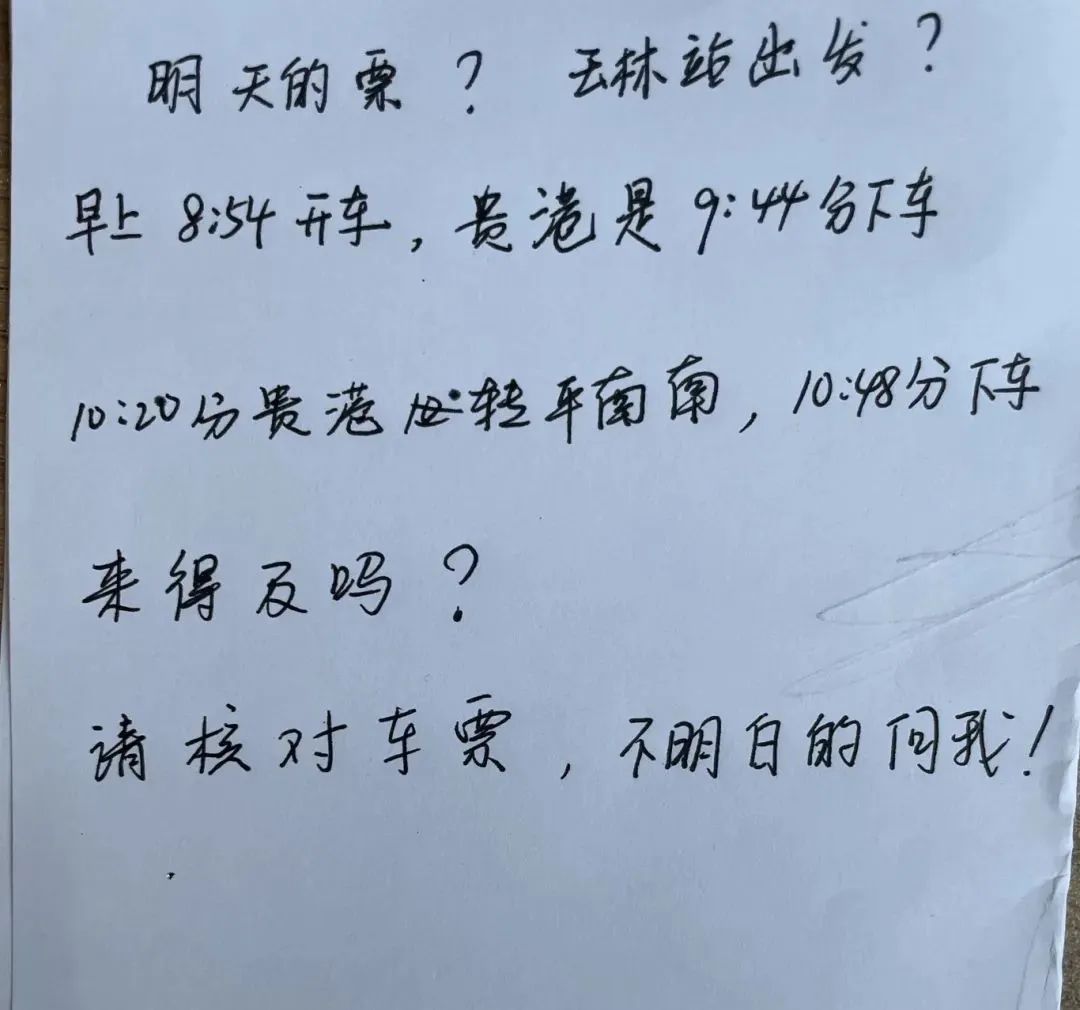 明天的票？ 玉林站出发？
早上 8:54 开车，贵港是 9:44分下车
10:20分贵港转平南南，10:48分下车
来得及吗？
请核对车票，不明白的问我！